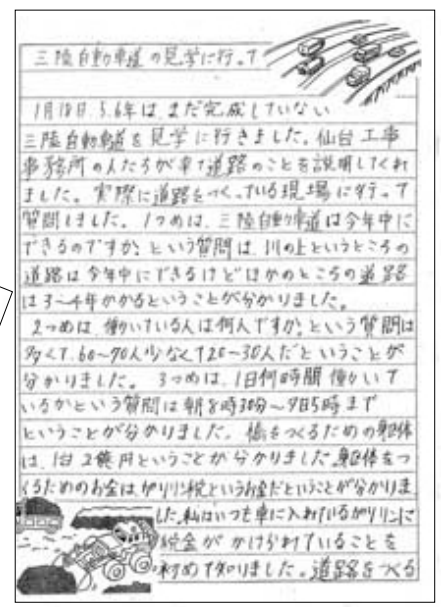 三陸自動車道の見学に行って
1月18日、5.6年は、まだ完成していない
三陸自動車道を見学に行きました。仙台工事
事務所の人たちが来て道路のことを説明してくれ
ました。実際に道路をつくっている現場に行って
質問しました。1つめは、三陸自動車道は今年中に
できるのですか。という質問は、川の上というところの
道路は今年中にできるけどほかのところの道路
は3〜4年かかるということが分かりました。
2つめは、働いている人は何人ですか。という質問は
多くて、60〜70人少なくて20〜30人だということが
分かりました。3つめは、1日何時間働いて
いるかという質問は朝8時30分〜夕日5時まで
ということが分かりました。橋をつくるための
は、1台2億円ということが分かりました。をつ
くるためのお金は、ガソリン税というお金だということが分かりま
した。私はいつも車に入れているガソリンに
税金がかけられていることを
初めて知りました。道路をつくる